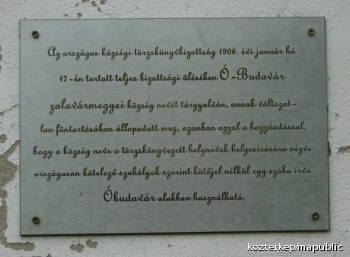 Az országos községi törzskönyvbizottság 1906. évi január hó
17-én tartott teljes bizottsági ülésében Ó-Budavár
zalavármegyei község nevét tárgyalván, annak változat-
lan föntartásában állapodott meg, azonban azzal a hozzáadással,
hogy a község neve a törzskönyvezett helynevek helyesírására nézve
országosan kötelező szabályok szerint kötőjel nélkül egy szóba írva
Óbudavár alakban használható.
kozterkep/mapublic